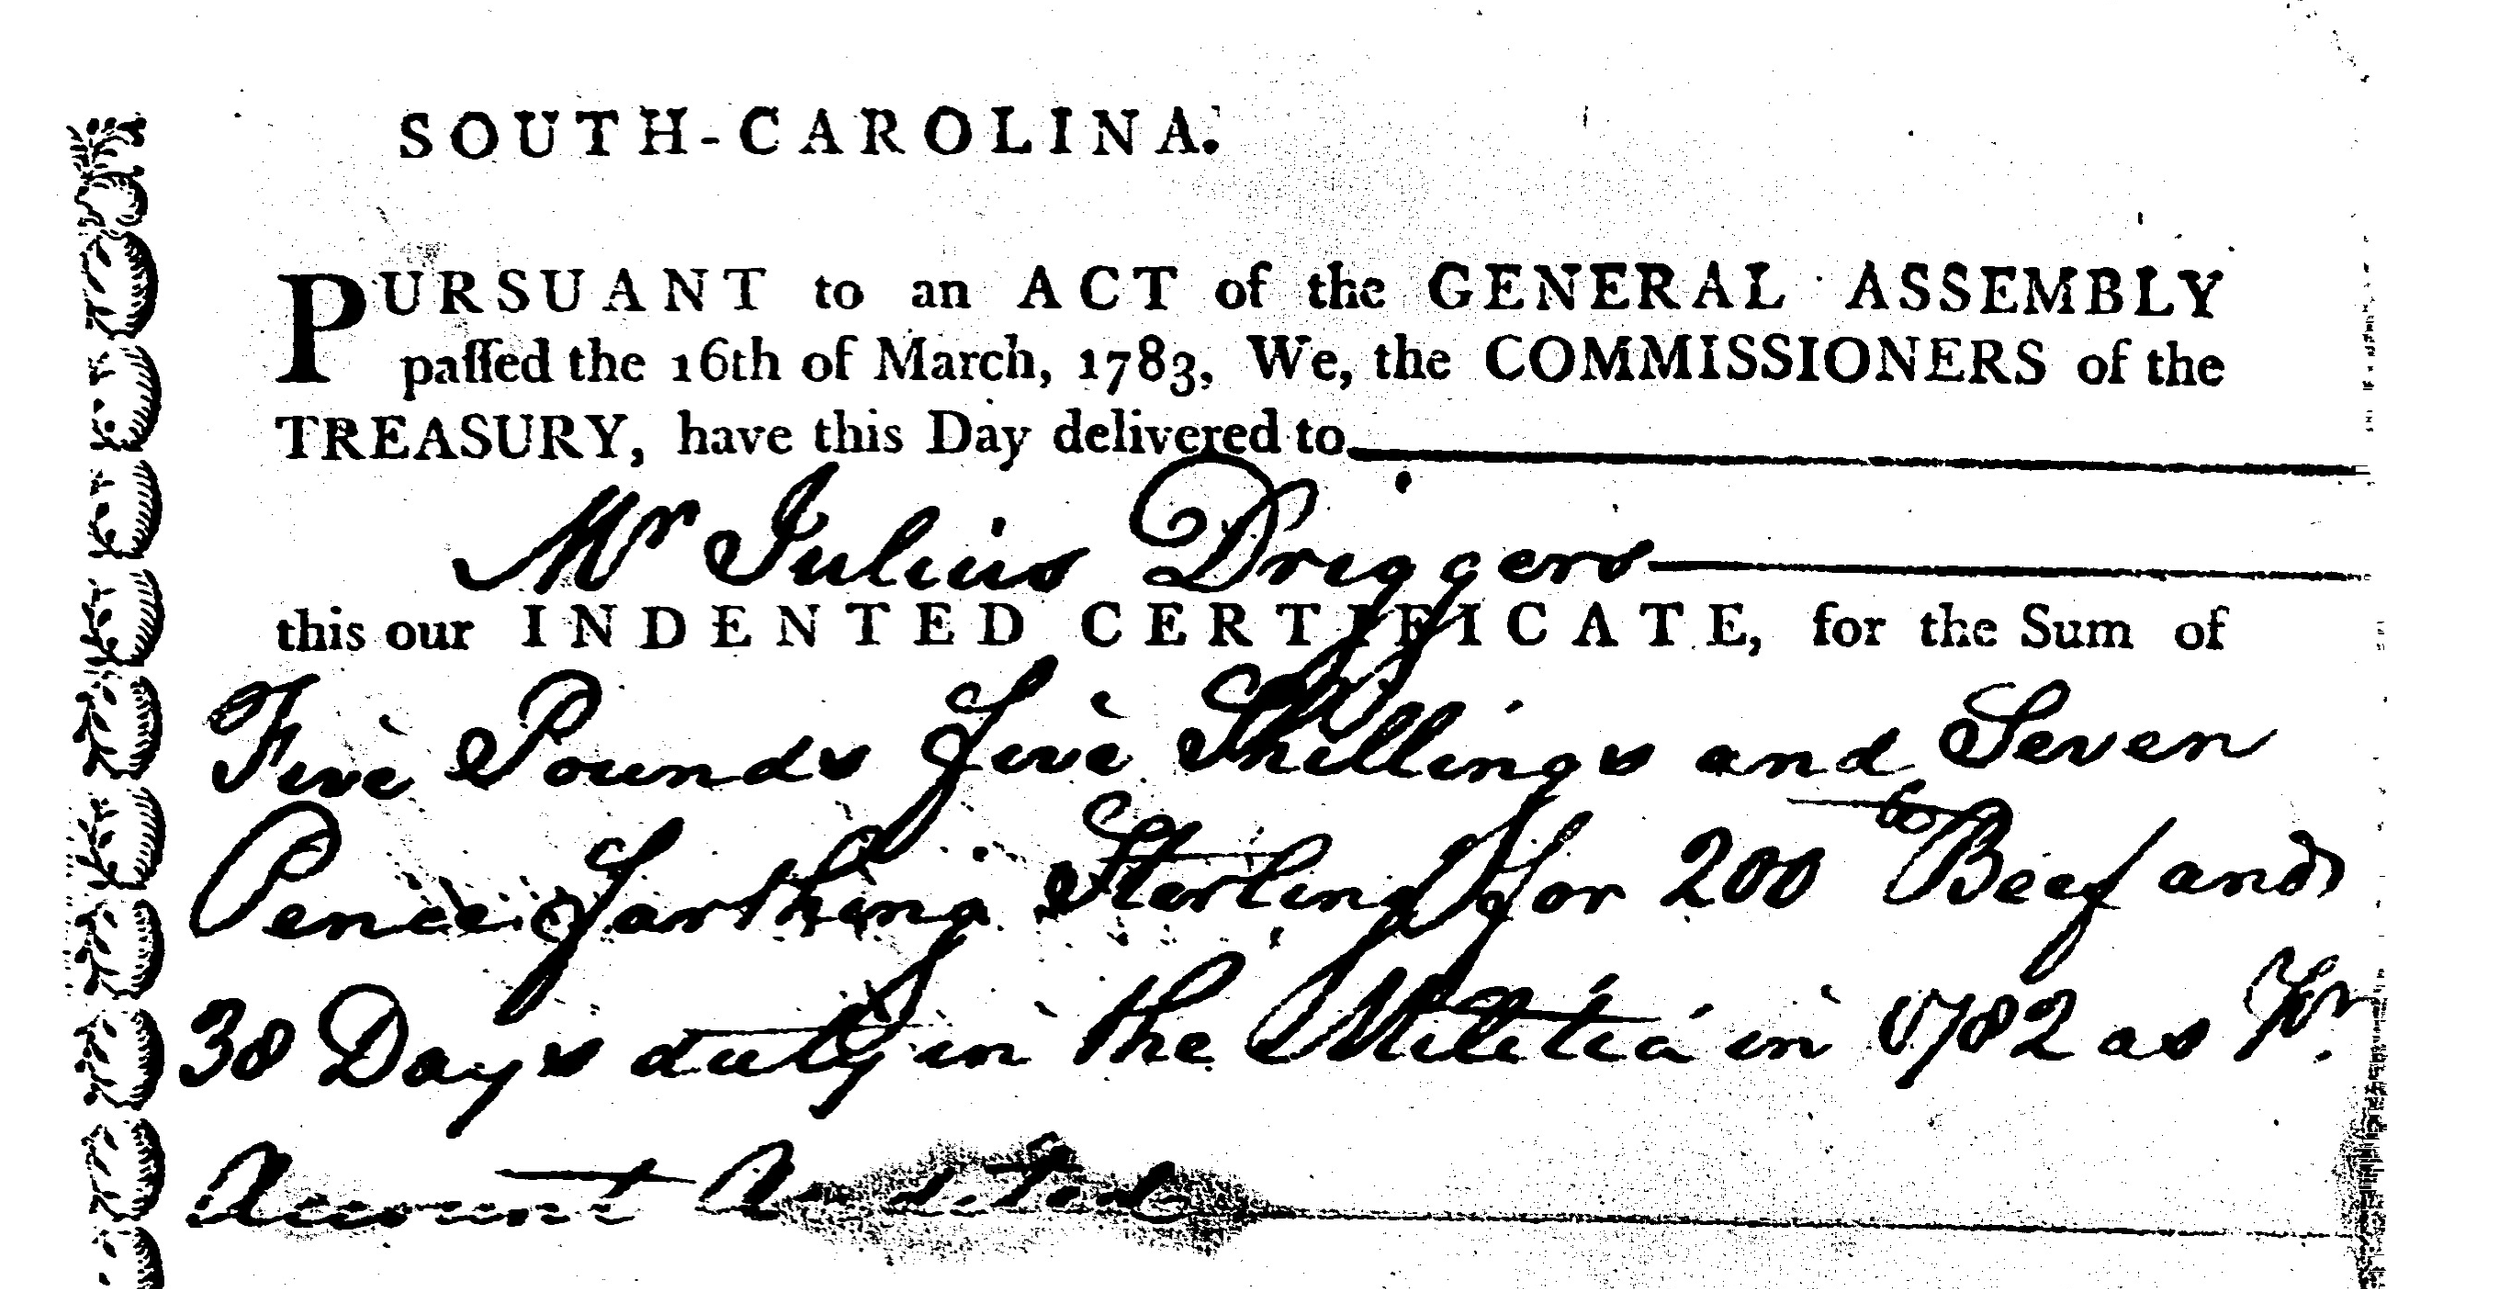 SOUTH-CAROLINA.
PURSUANT to an ACT of the GENERAL ASSEMBLY
paſſed the 16th of March, 1783, We, the COMMISSIONERS of the
TREASURY, have this Day delivered to
Mr Julius Driggers
this our INDENTED CERTIFICATE, for the Sum of
Five Pounds Five Shillings and Seven
Pence Farthing Sterling for 200 lb Beef and
38 Days duty in the Militia in 1782 as Pr.
Account Audited